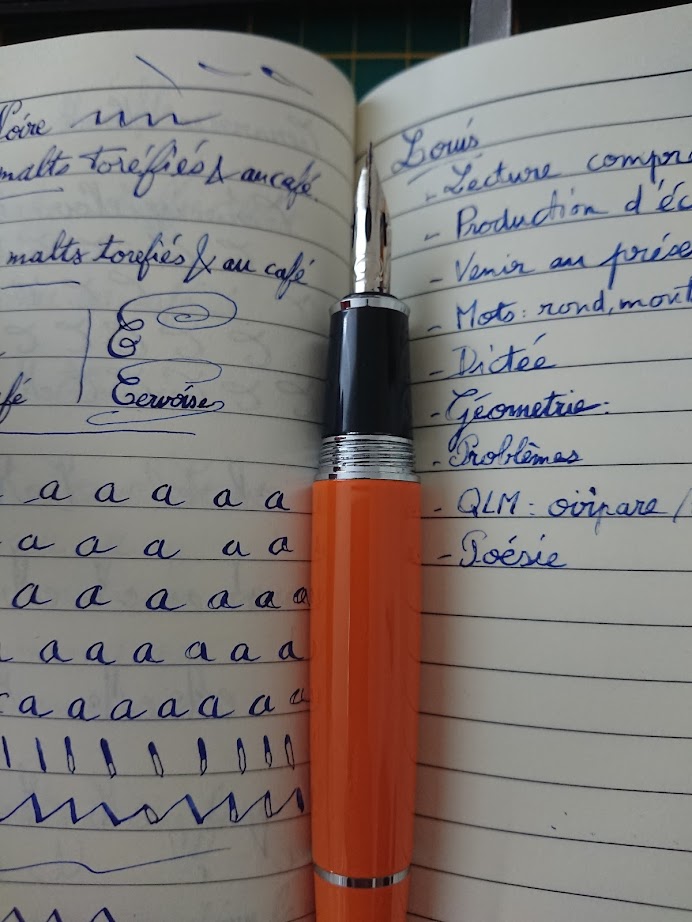 Noire
malts toréfiés & au café.
malts torefiés & au café
C
Cervoise
fé
a a a a a
a a a a a
a a a a a a
a a a a a a
a a a a a a a
Louis
- Lecture compr
- Production d'éc
- Venir au prése
- Mots : rond, mont
- Dictée
- Géometrie :
- Problèmes
- QLM : ovipare /
- Poésie